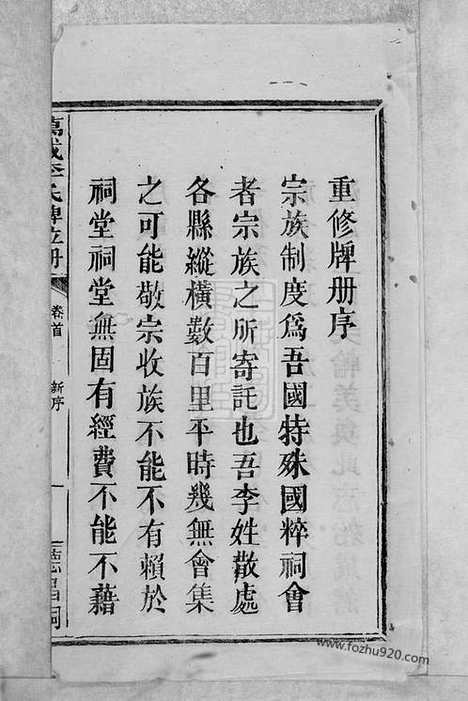 重修牌册序
宗族制度爲吾國特殊國粹祠會
者宗族之所寄託也吾李姓散處
各縣縱橫數百里平時幾無會集
之可能敬宗收族不能不有賴於
祠堂祠堂無固有經費不能不藉
萬載李氏牌位册
卷首
新序
www.fozhu920.com